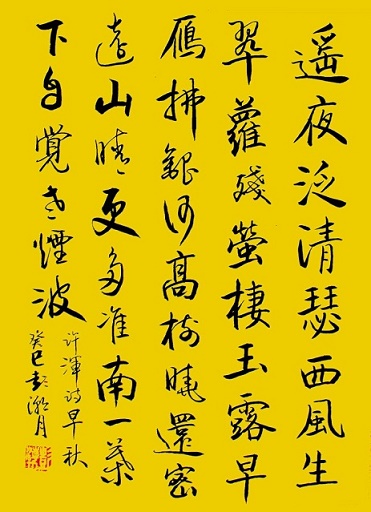 遥夜泛清瑟西風生
翠蘿殘螢棲玉露早
鴈拂銀河高樹曉還密
遠山晴更多淮南一葉
下自覺老煙波
许渾诗早秋
癸巳彭月